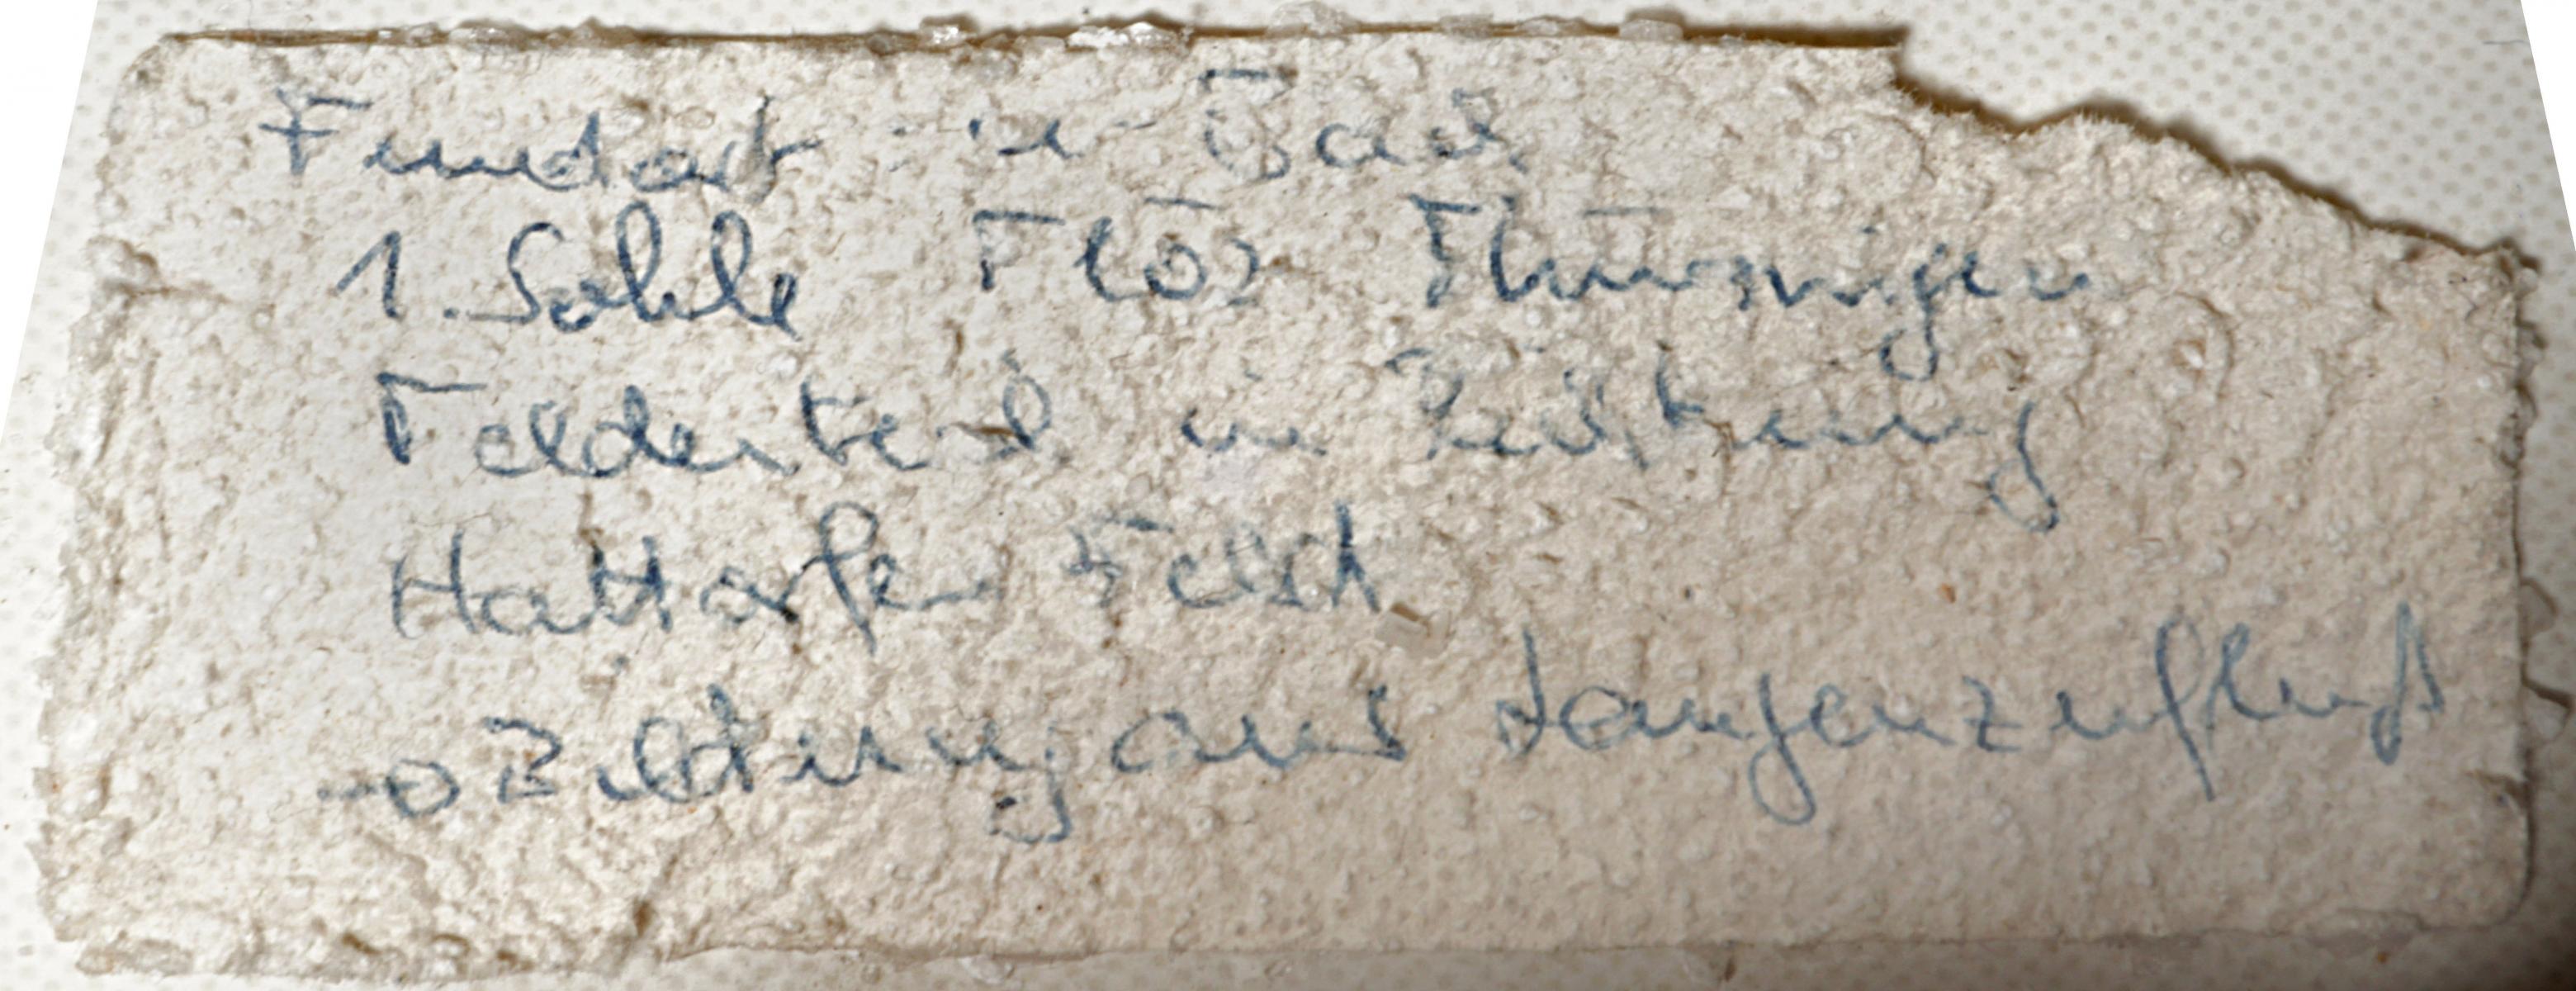 Fundort
1. Sohle Flöz Thüringen
Felderteil in Richtung
Hattorfer Feld
Bildung aus Laugenzufluß